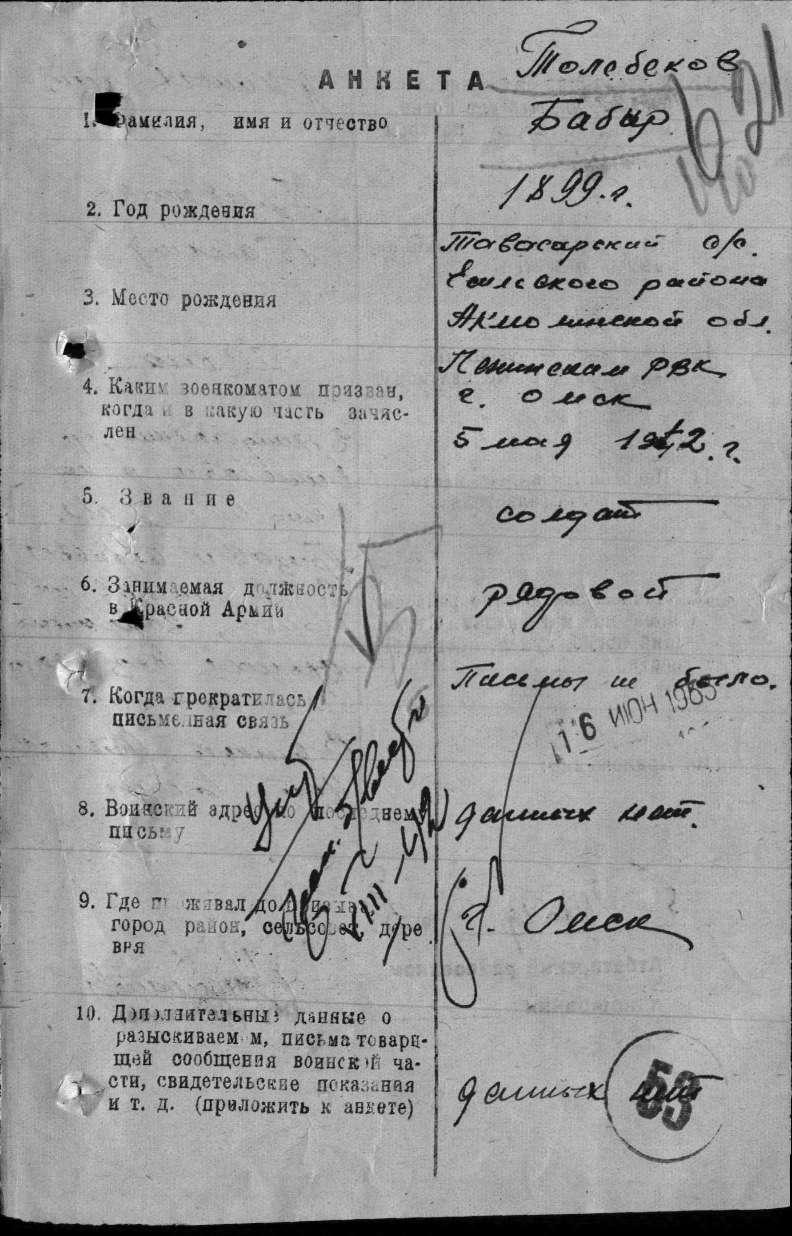 АНКЕТА
Толебеков
1. Фамилия, имя и отчество
Бабир
21
2. Год рождения
1899.г.
3. Место рождения
Тавасарский с/с.
Есильского района
Акмолинской обл.
4. Каким военкоматом призван,
когда и в какую часть зачис-
лен
Ленинским РВК
г. Омск
5 мая 1942.г.
5. Звание
солдат
6. Занимаемая должность
в Красной Армии
рядовой
7. Когда прекратилась
письменная связь
Письмы не было.
16 ИЮН 1965
8. Воинский адрес по последнему
письму
данных нет.
VIII-42
9. Где проживал до призыва
город район, сельсовет, дере
вня
г. Омск
10. Дополнительные данные о
разыскиваемом, письма товари-
щей сообщения воинской ча-
сти, свидетельские показания
и т. д. (приложить к анкете)
данных нет
53